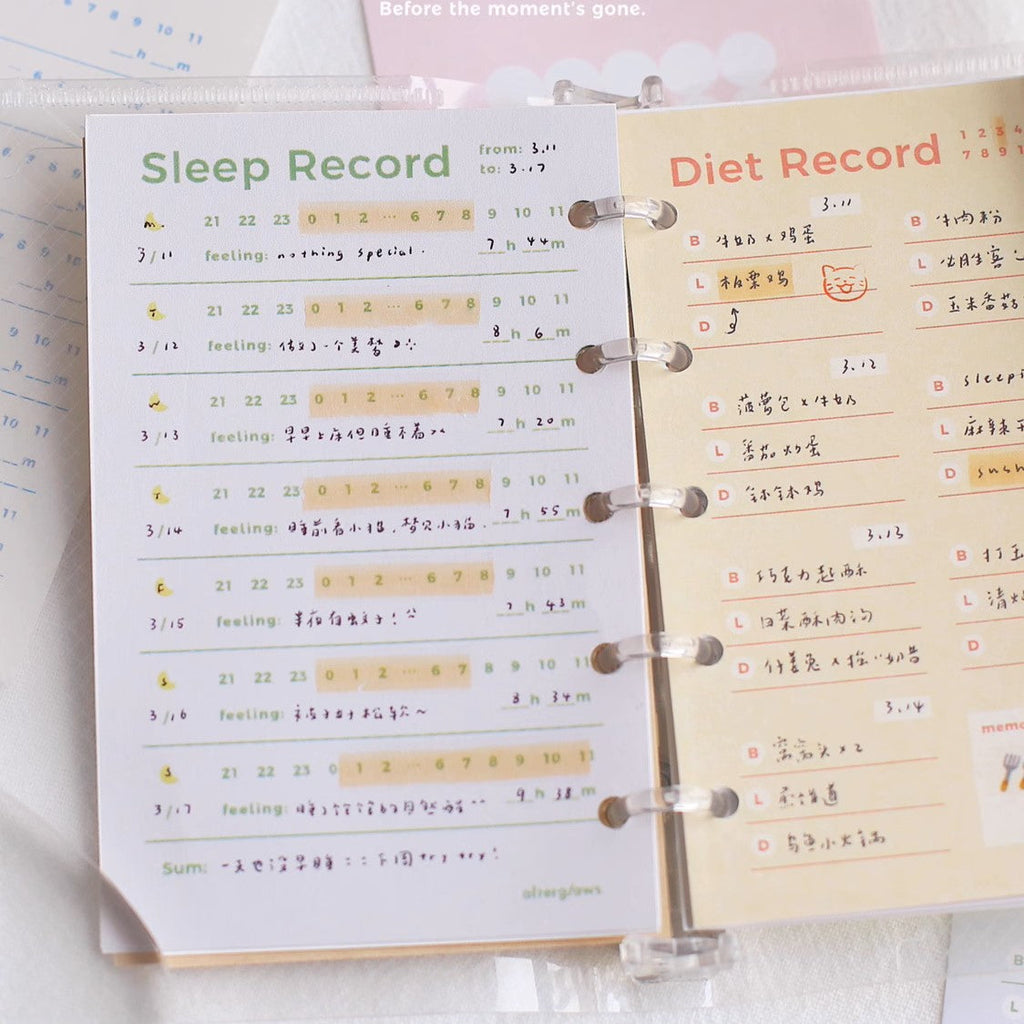 Before the moment's gone.
Sleep Record
from: 3.11
to: 3.17
m.
21 22 23 0 1 2 ... 6 7 8 9 10 11
3/11 feeling: nothing special. 7 h 44 m
T
21 22 23 0 1 2 ... 6 7 8 9 10 11
3/12 feeling: 做了一个美梦 8 h 6 m
w
21 22 23 0 1 2 ... 6 7 8 9 10 11
3/13 feeling: 早早上床但睡不着 7 h 20 m
T
21 22 23 0 1 2 ... 6 7 8 9 10 11
3/14 feeling: 睡前看小猫,梦见小猫. 7 h 55 m
F
21 22 23 0 1 2 ... 6 7 8 9 10 11
3/15 feeling: 半夜有蚊子! 7 h 43 m
S
21 22 23 0 1 2 ... 6 7 8 9 10 11
3/16 feeling: 被子好松软~ 8 h 34 m
S
21 22 23 0 1 2 ... 6 7 8 9 10 11
3/17 feeling: 9 h 38 m
Sum: 一天也没早睡 下周 try try!
Diet Record
1 2 3 4
7 8 9 1
3.11
B 牛奶 x 鸡蛋
L 板栗鸡
D
3.12
B 菠萝包 x 牛奶
L 番茄炒蛋
D 钵钵鸡
3.13
B 巧克力起酥
L 白菜酥肉汤
D
3.14
B 窝窝头 x 2
L
D 乌鱼小火锅
B 牛肉粉
L 必胜客
D 玉米番茄
B sleepi
L 麻辣
D sush
B 打
L 清
D
memo
B
L